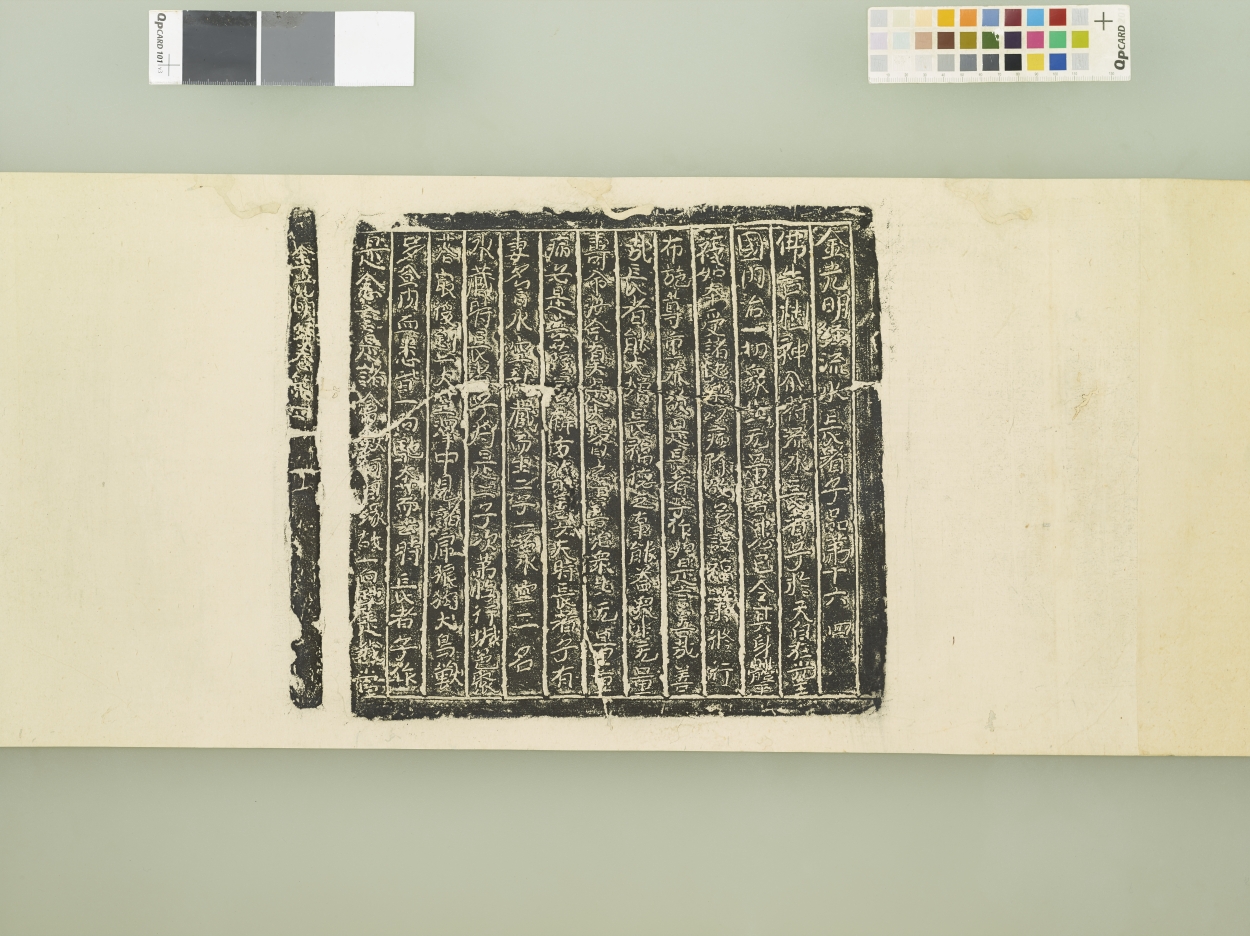 金光明經流水長者子品第十六 四
佛告樹神尒時流水長者子於天自在光王
國内治一切衆生无量苦患已令其身體平
復如本受諸快樂以病除故多設福業脩行
布施尊重恭敬是長者子作如是言善哉善
哉長者能大增長福德之事能益衆生无量
壽命汝今真是大醫之王善治衆生无量重
病必是菩薩善解方藥善女天時長者子有
妻名曰水空龍藏而生二子一名水空二名
水藏時長者子將是二子次第遊行城邑聚
落最後到一大空澤中見諸虎狼狗犬鳥獸
多食肉血悉皆一向馳奔而去時長者子作
是念言是諸禽獸何因緣故一向馳走我當
金光明經卷第四
QPCARD 101
QPCARD